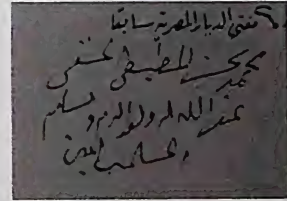 مفتي الديار المصرية سابقا
محمد بخيت المطيعي الحنفي
غفر الله له ولوالديه ولمسلمين
والمسلمات امين